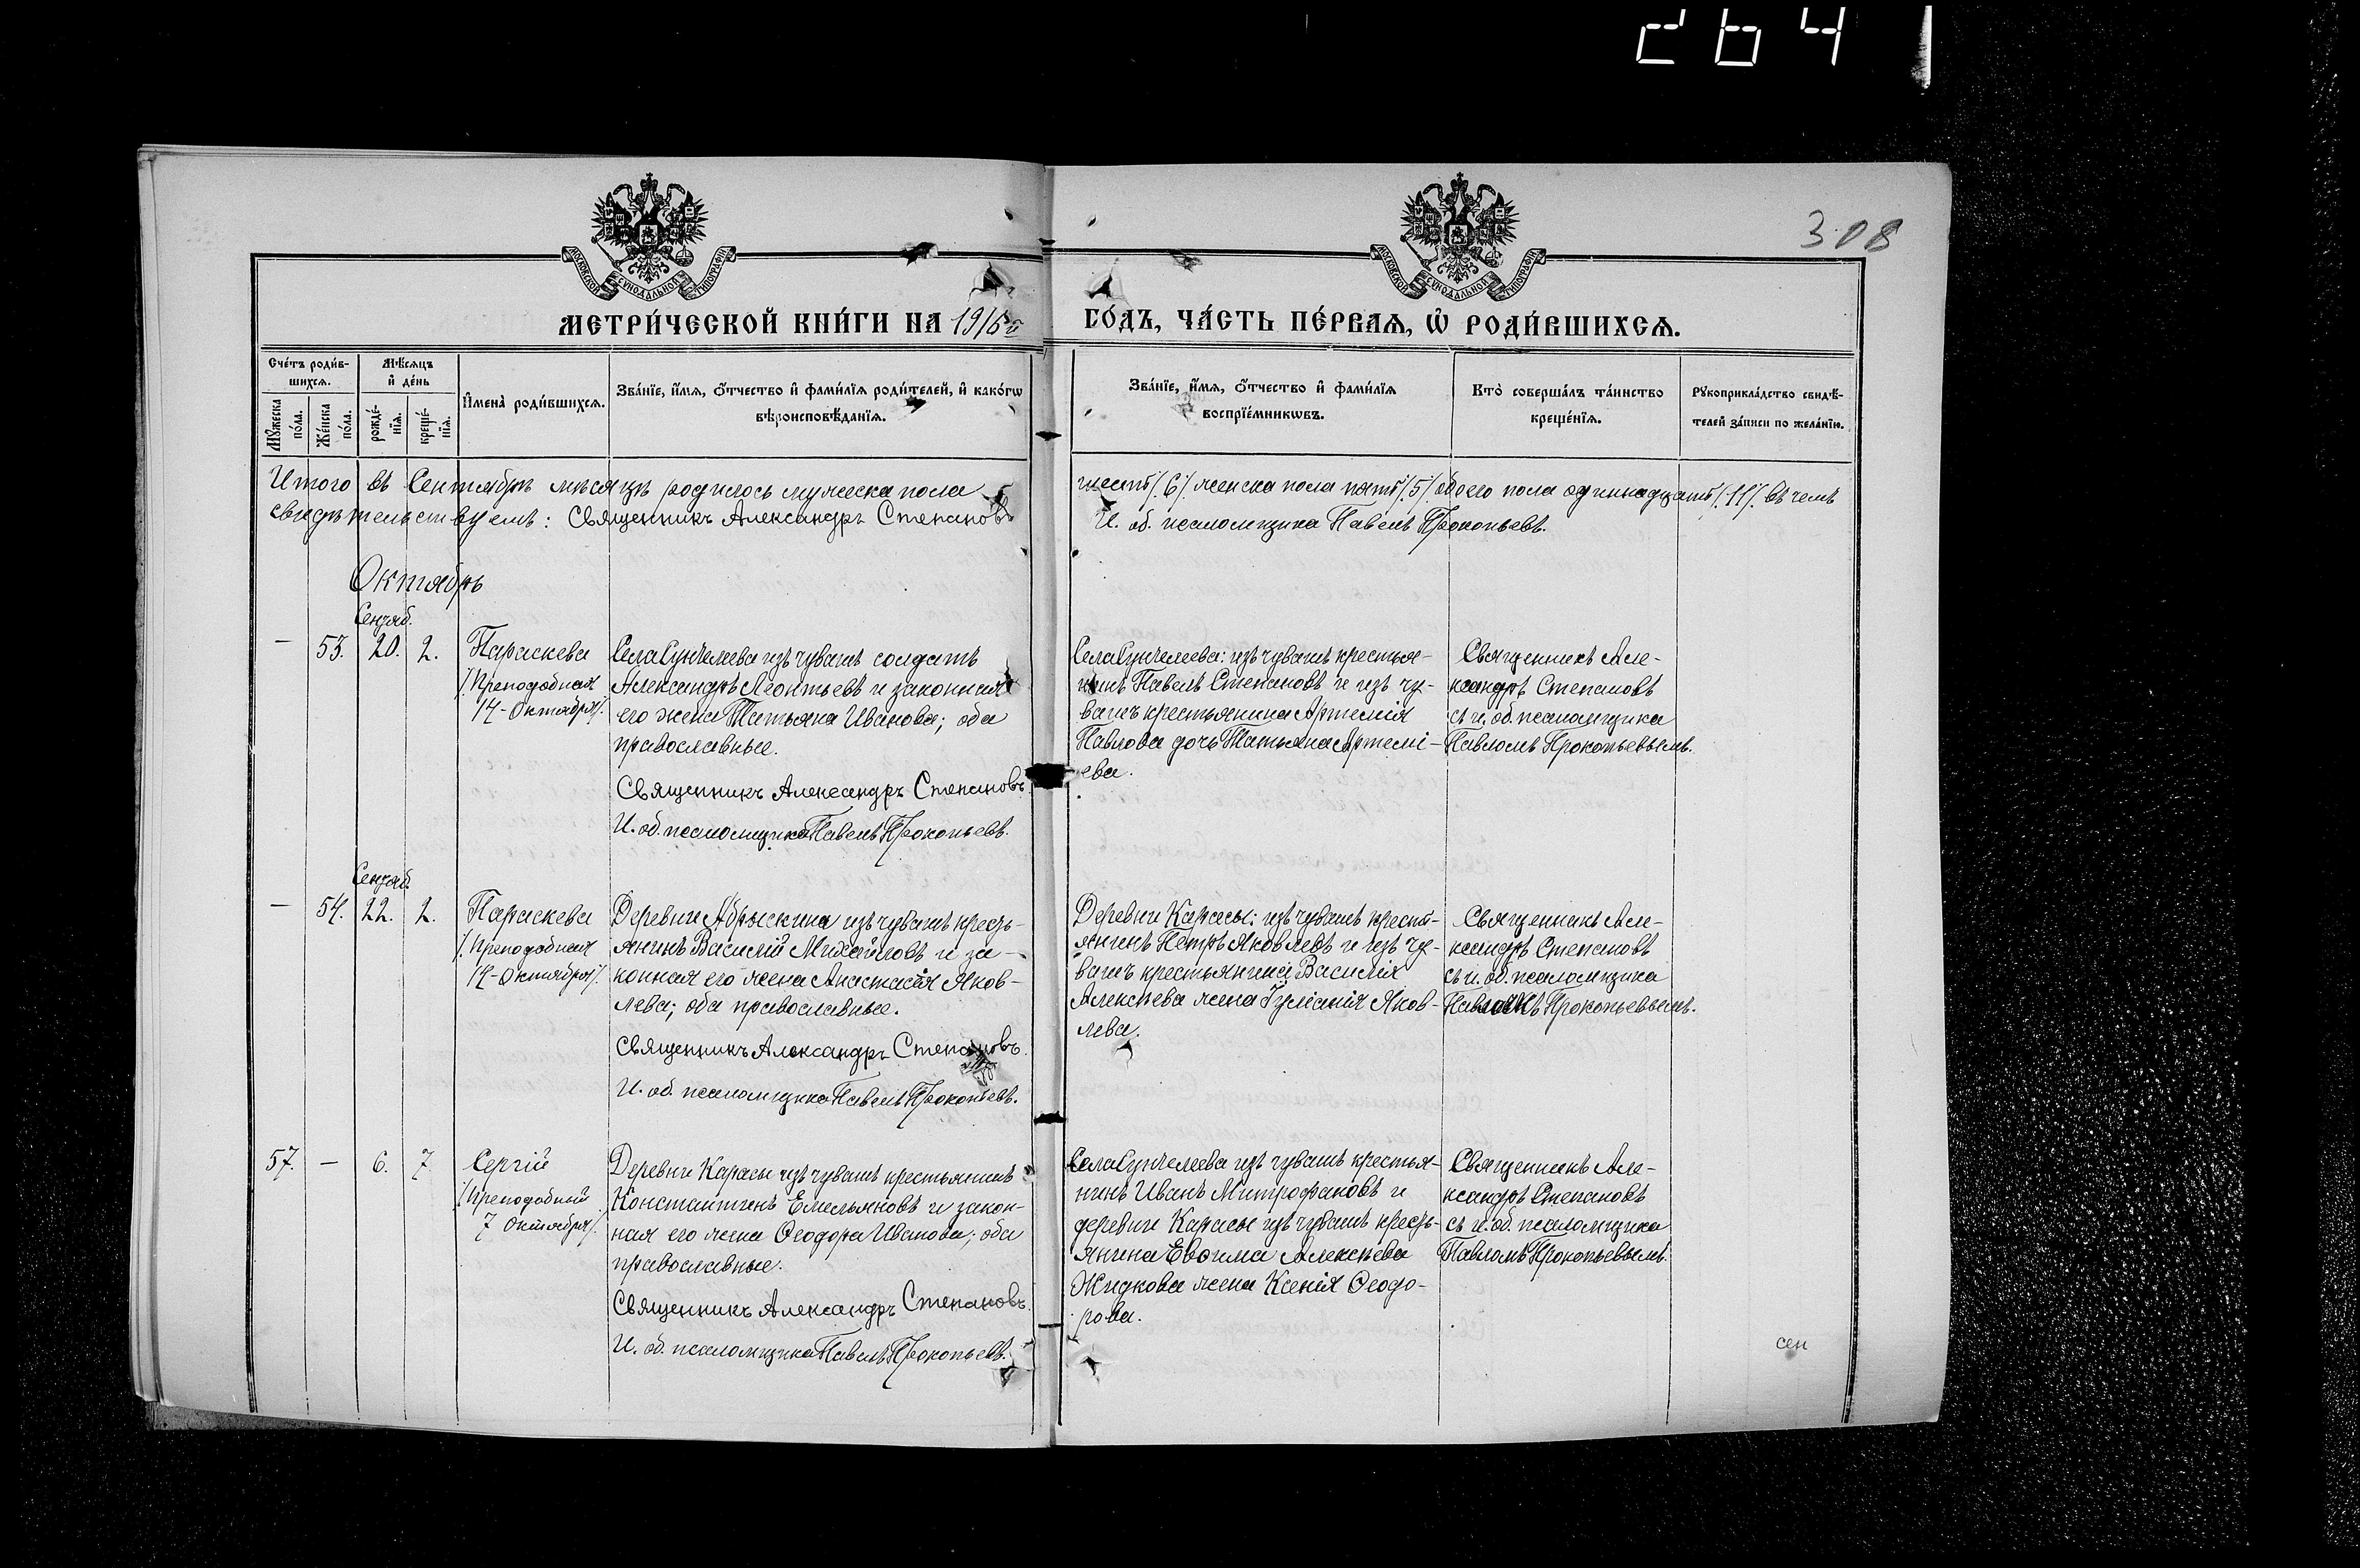 2641
308
МОСКОВСКОЙ СѴНОДАЛЬНОЙ ТИПОГРАФІИ
МОСКОВСКОЙ СѴНОДАЛЬНОЙ ТИПОГРАФІИ
МЕТРИ́ЧЕСКОЙ КНИ́ГИ НА 1916й ГО́ДЪ, ЧА́СТЬ ПЕ́РВАЯ, Ѡ҆ РОДИ́ВШИХСЯ.
Сче́тъ роди́в-
шихся.
Мꙋжеска по́ла.
Же́нска по́ла.
Мѣ́сяцъ
и҆ де́нь
рожде́-
нїя.
креще́-
нїя.
И҆мена̀ роди́вшихся.
Зва́нїе, и҆́мя, ѻ҆́тчество и҆ фами́лїя роди́телей, и҆ како́гѡ
вѣроисповѣ́данїя.
Зва́нїе, и҆́мя, ѻ҆́тчество и҆ фами́лїя
воспрїе́мникѡвъ.
Кто̀ соверша́лъ та́инство
креще́нїя.
Рꙋкоприкла́дство свидѣ́-
телей за́писи по жела́нїю.
Итого въ Сентябрѣ мѣсяцѣ родилось мужеска пола шесть /.6/ женска пола пять /.5/ обоего пола одиннадцать /.11/. въ чемъ
свидѣтельствуемъ: Священникъ Александръ Степановъ И. об. псаломщика Павелъ Прокопьевъ.
Октябрь
Сентяб.
— 53. 20. 2.
Параскева
/.Преподобная
14-Октября/.
Села Сунчелеева изъ чувашъ солдатъ
Александръ Леонтьевъ и законная
его жена Татьяна Иванова; оба
православные.
Священникъ Александръ Степановъ.
И. об. псаломщика Павелъ Прокопьевъ.
Села Сунчелеева: изъ чувашъ крестья-
нинъ Павелъ Степановъ и изъ чу-
вашъ крестьянина Артемія
Павлова дочь Татьяна Артемі-
ева.
Священникъ Але-
ксандръ Степановъ
съ и. об. псаломщика
Павломъ Прокопьевымъ.
Сентяб.
— 54. 22. 2.
Параскева
/.Преподобная
14-Октября/.
Деревни Абрыскина изъ чувашъ кресть-
янинъ Василій Михайловъ и за-
конная его жена Анастасія Яков-
лева; оба православные.
Священникъ Александръ Степановъ.
И. об. псаломщика Павелъ Прокопьевъ.
Деревни Карасы: изъ чувашъ кресть-
янинъ Петръ Яковлевъ и изъ чу-
вашъ крестьянина Василія
Алексѣева жена Іуліанія Яков-
лева.
Священникъ Але-
ксандръ Степановъ
съ и. об. псаломщика
Павломъ Прокопьевымъ.
57. — 6. 7.
Сергій
/.Преподобный
7 Октября/.
Деревни Карасы изъ чувашъ крестьянинъ
Константинъ Емельяновъ и закон-
ная его жена Ѳеодора Иванова; оба
православные.
Священникъ Александръ Степановъ.
И. об. псаломщика Павелъ Прокопьевъ.
Села Сунчелеева изъ чувашъ крестья-
нинъ Иванъ Митрофановъ и
деревни Карасы изъ чувашъ кресть-
янина Евѳима Алексѣева
Жидкова жена Ксенія Ѳеодо-
рова.
Священникъ Але-
ксандръ Степановъ
съ и. об. псаломщика
Павломъ Прокопьевымъ.
сен